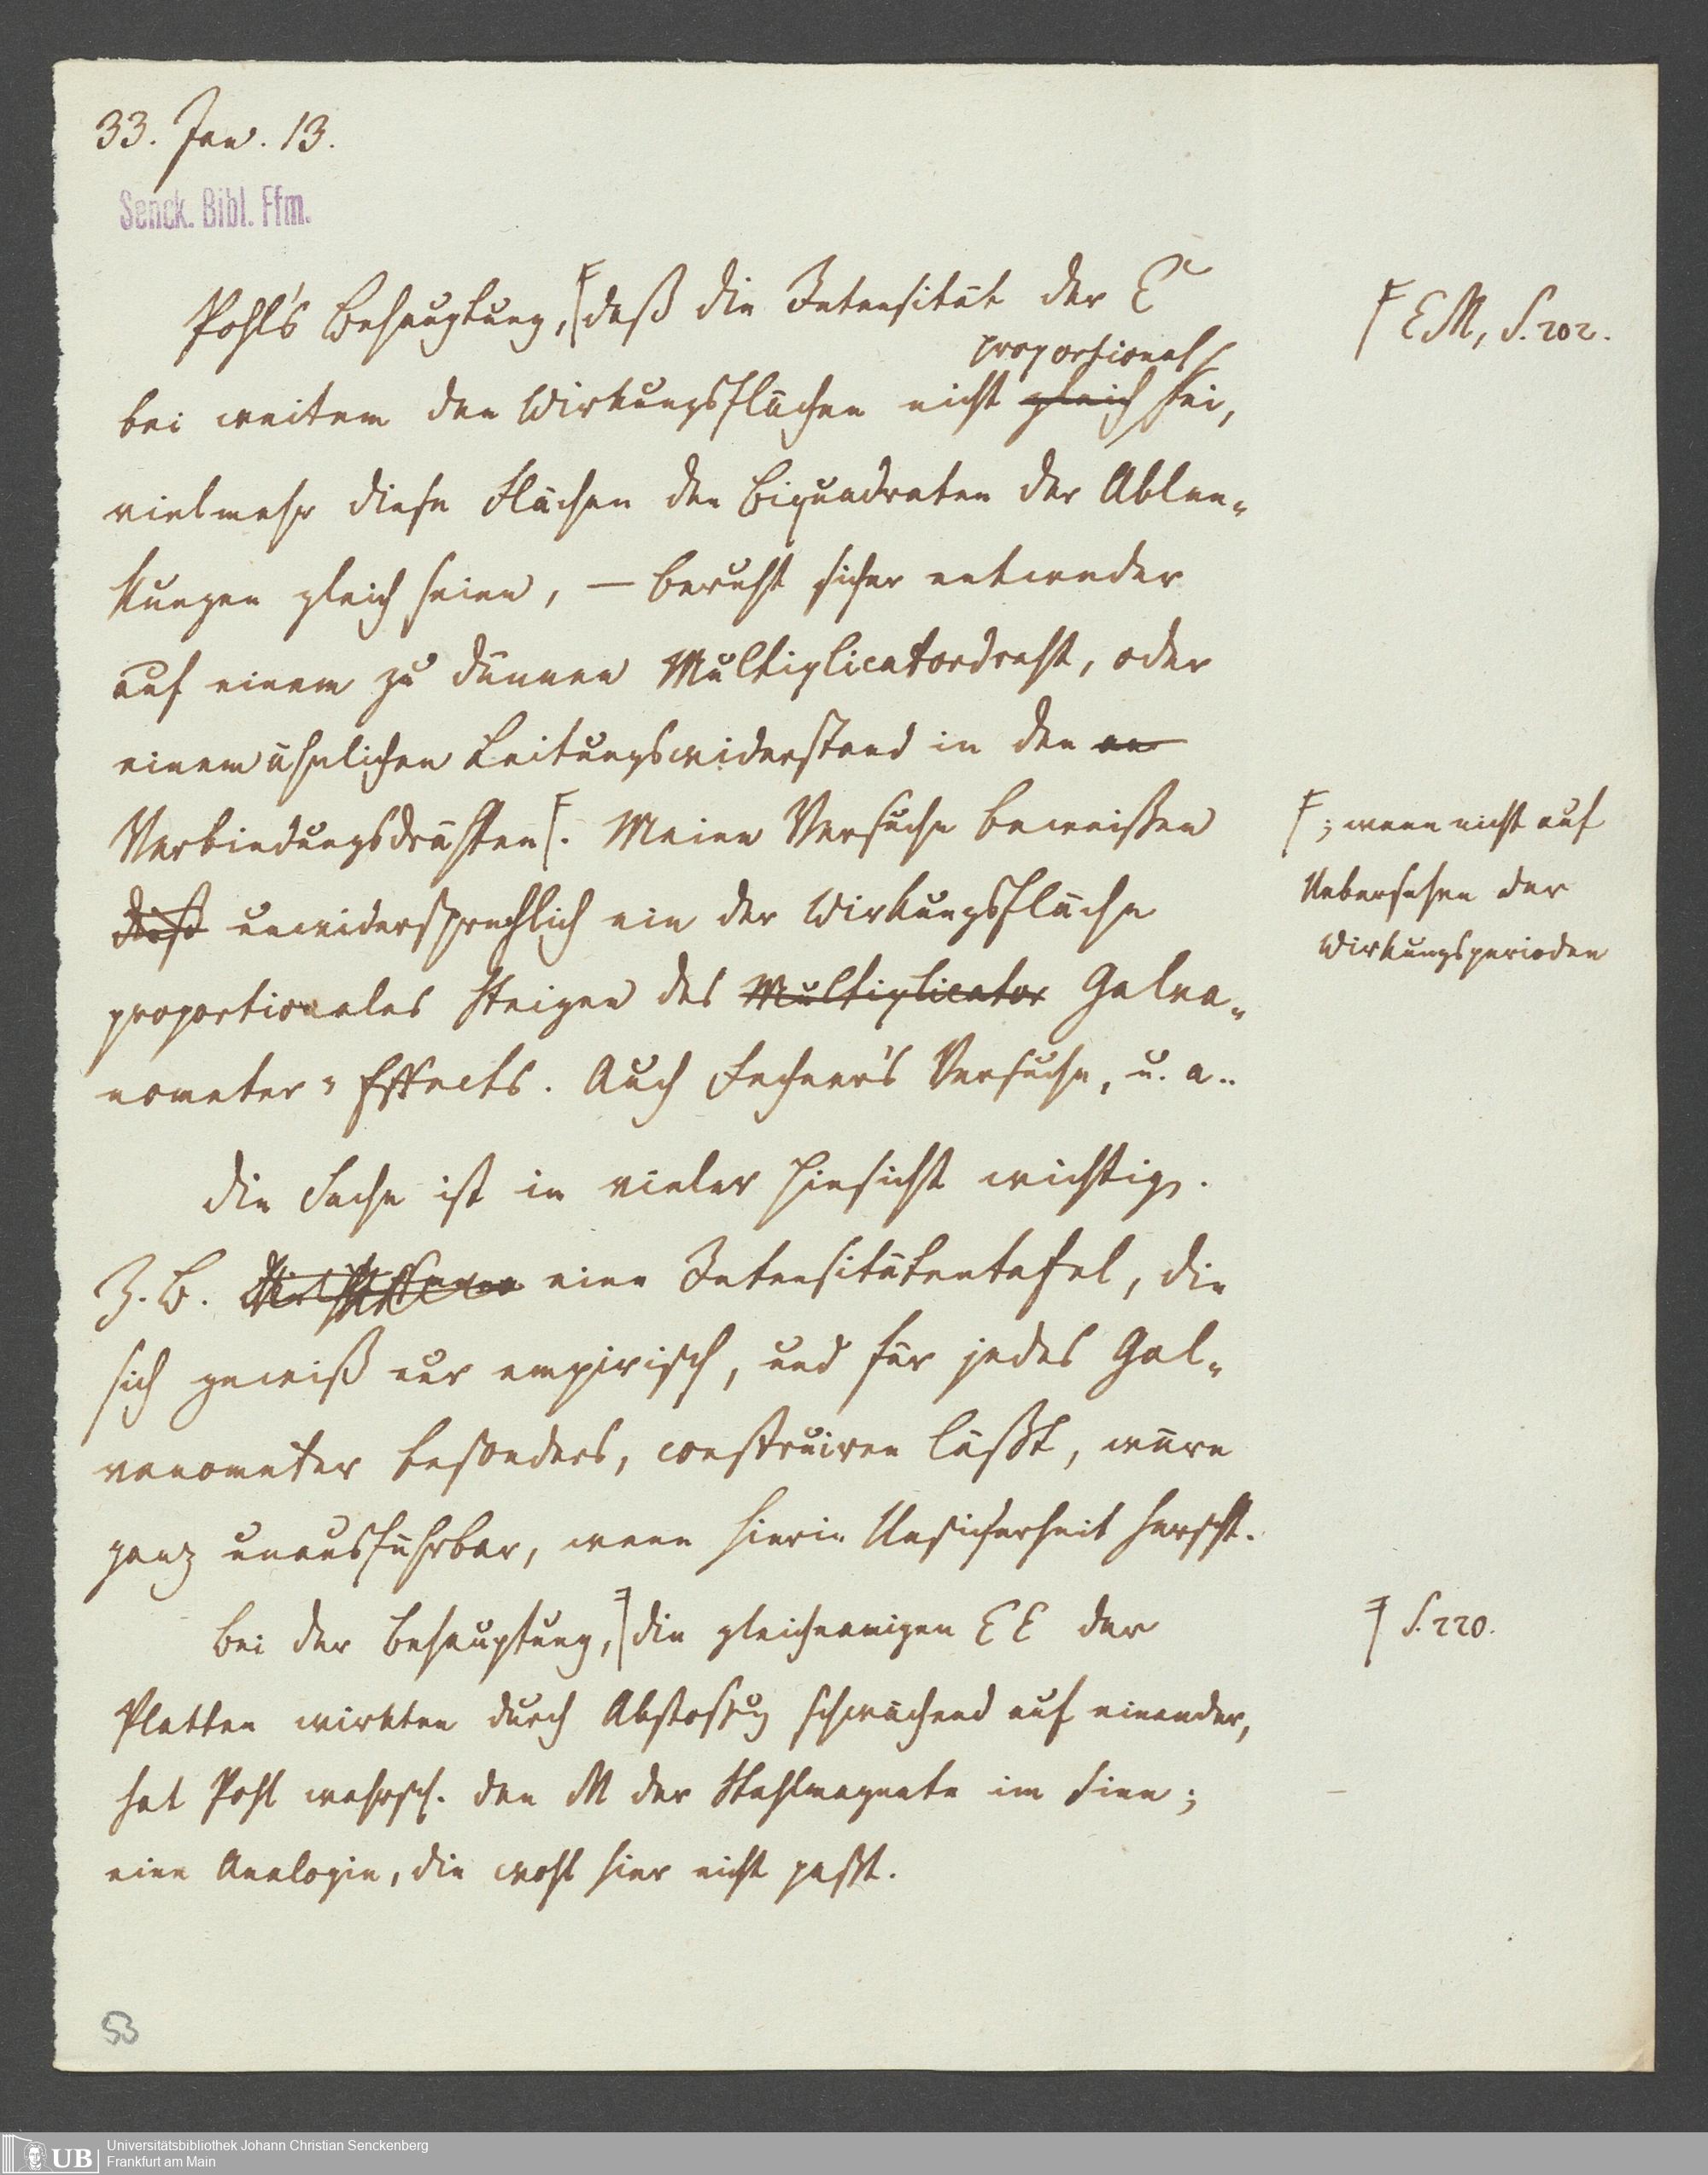 33. Jan. 13.
Senck. Bibl. Ffm.
Pohl's Behauptung, daß die Intensität der E
EM, S. 202.
proportional
bei weitem den Wirkungsflächen nicht gleich sei,
vielmehr diese Flächen den Biquadraten der Ablen-
kungen gleich seien, — beruht sicher entweder
auf einem zu dünnen Multiplicatordraht, oder
einem ähnlichen Leitungswiderstand in den an
Verbindungsdrähten. Meine Versuche beweißen
; wenn nicht auf
Uebersehen der
Wirkungsperioden
dieß unwidersprechlich ein der Wirkungsfläche
proportionales Steigen des Multiplicator Galva-
nometer-Effects. Auch Fechner's Versuche, u. a..
Die Sache ist in vieler Hinsicht wichtig.
Z. B. eine Intensitätentafel, die
sich gewiß nur empirisch, und für jedes Gal-
vanometer besonders, construiren läßt, wäre
ganz unausführbar, wenn hierin Unsicherheit herscht.
Bei der Behauptung, die gleichnamigen EE der
S. 220.
Platten wirkten durch Abstoßug schwächend auf einander,
hat Pohl wahrsch. den M der Stahlmagnete im Sinn;
eine Analogie, die wohl hier nicht paßt.
53
UB
Universitätsbibliothek Johann Christian Senckenberg
Frankfurt am Main